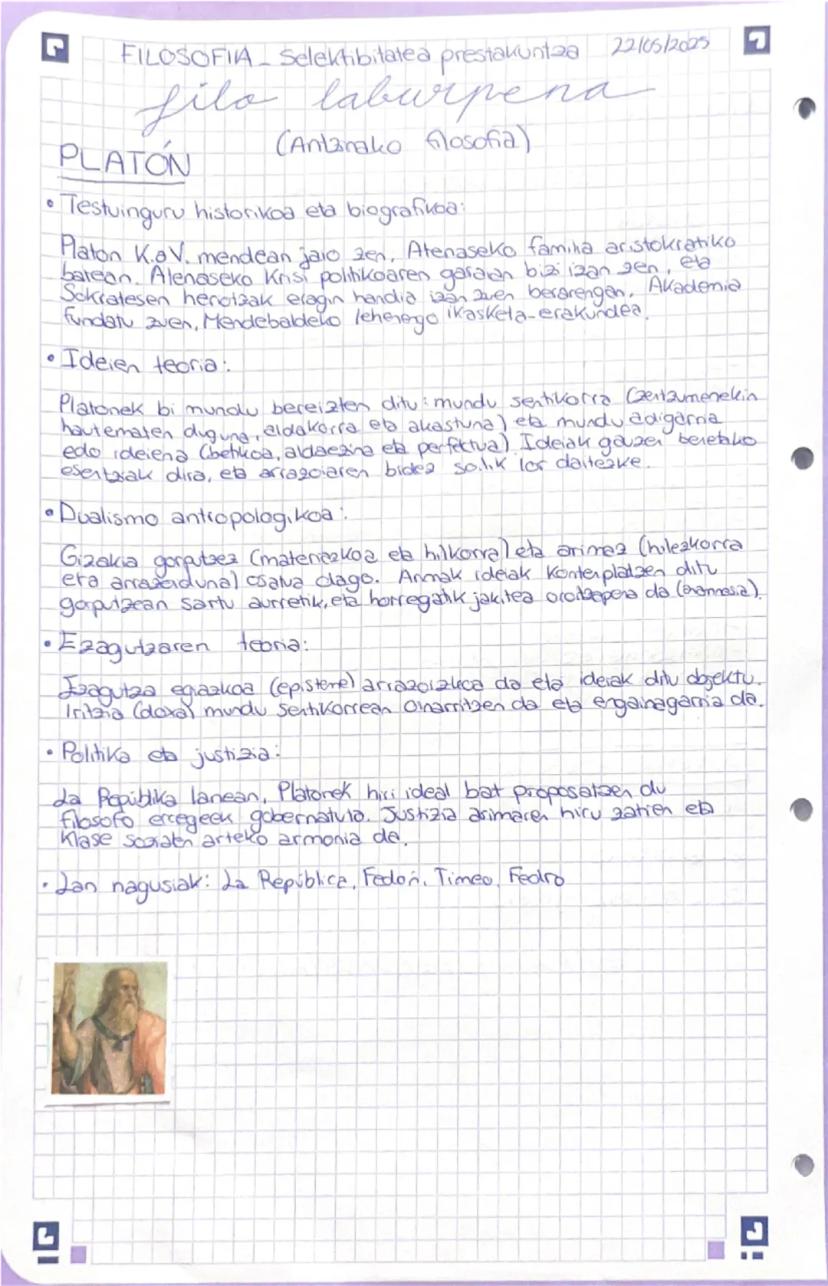 FILOSOFIA - Selektibitatea prestakuntza 22/05/2025
filo laburpena
(Antzinako filosofia)
PLATÓN
• Testuinguru historikoa eta biografikoa:
Platon K.a V. mendean jaio zen, Atenaseko familia aristokratiko
batean. Atenaseko krisi politikoaren garaian bizi izan zen, eta
Sokratesen heriotzak eragin handia izan zuen berarengan. Akademia
fundatu zuen, Mendebaldeko lehenego ikasketa-erakundea.
• Ideien teoria:
Platonek bi mundu bereizten ditu: mundu sentikorra (zentzumenekin
hautematen duguna, aldakorra eta akastuna) eta mundu adigarria
edo ideiena (betikoa, aldaezina eta perfektua). Ideiak gauzen benetako
esentziak dira, eta arrazoiaren bidez soilik lor daitezke.
• Dualismo antropologikoa:
Gizakia gorputzez (materiazkoa eta hilkorra) eta arimaz (hilezkorra
eta arrazoiduna) osatua dago. Arimak ideiak kontenplatzen ditu
gorputzean sartu aurretik, eta horregatik jakitea oroitzapena da (anamnesia).
• Ezagutzaren teoria:
Ezagutza egiazkoa (episteme) arrazoizkoa da eta ideiak ditu objektu.
Iritzia (doxa) mundu sentikorrean oinarritzen da eta engainagarria da.
• Politika eta justizia:
La República lanean, Platonek hiri ideal bat proposatzen du
filosofo erregeek gobernatuta. Justizia arimaren hiru zatien eta
klase sozialen arteko armonia da.
• Lan nagusiak: La República, Fedón, Timeo, Fedro